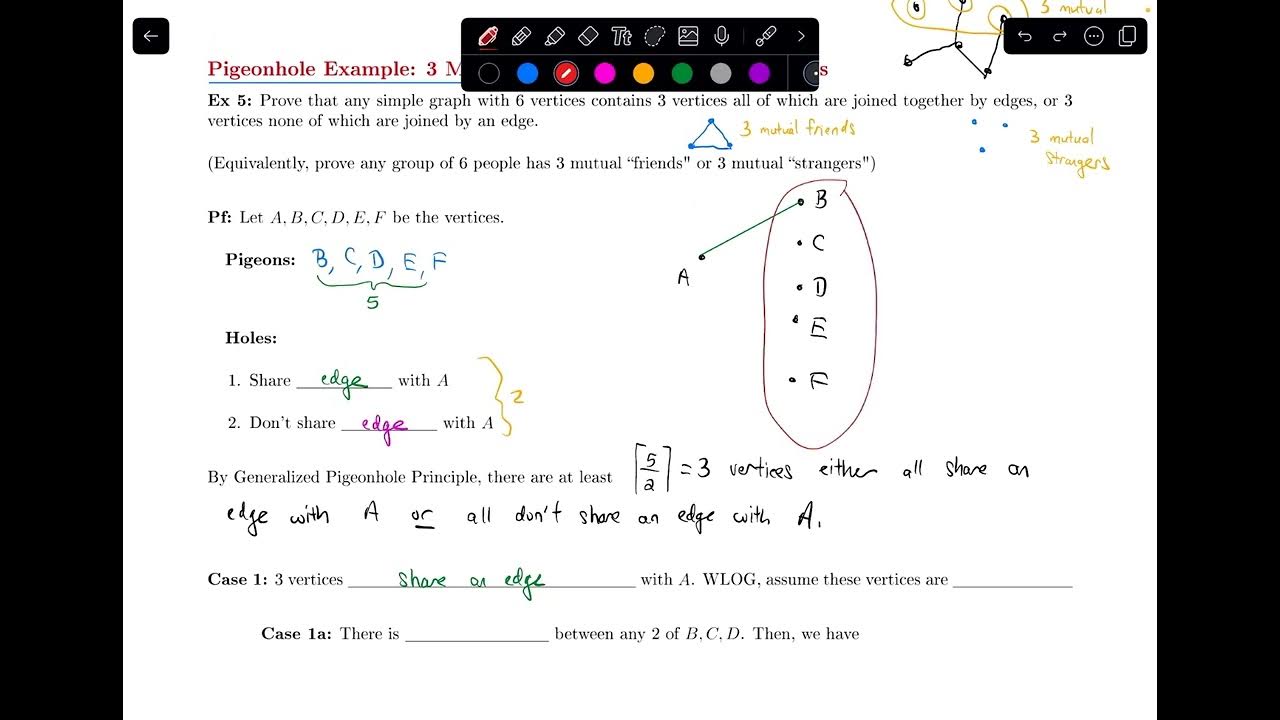 3 mutual
Tt
Pigeonhole Example: 3 M s
Ex 5: Prove that any simple graph with 6 vertices contains 3 vertices all of which are joined together by edges, or 3
vertices none of which are joined by an edge.
3 mutual friends
3 mutual
strangers
(Equivalently, prove any group of 6 people has 3 mutual “friends" or 3 mutual “strangers")
Pf: Let A, B, C, D, E, F be the vertices.
Pigeons: B, C, D, E, F
5
A
B
C
D
E
F
Holes:
1. Share edge with A
2. Don't share edge with A
2
By Generalized Pigeonhole Principle, there are at least ⌈5/2⌉ = 3 vertices either all share an
edge with A or all don't share an edge with A.
Case 1: 3 vertices share an edge with A. WLOG, assume these vertices are
Case 1a: There is between any 2 of B, C, D. Then, we have